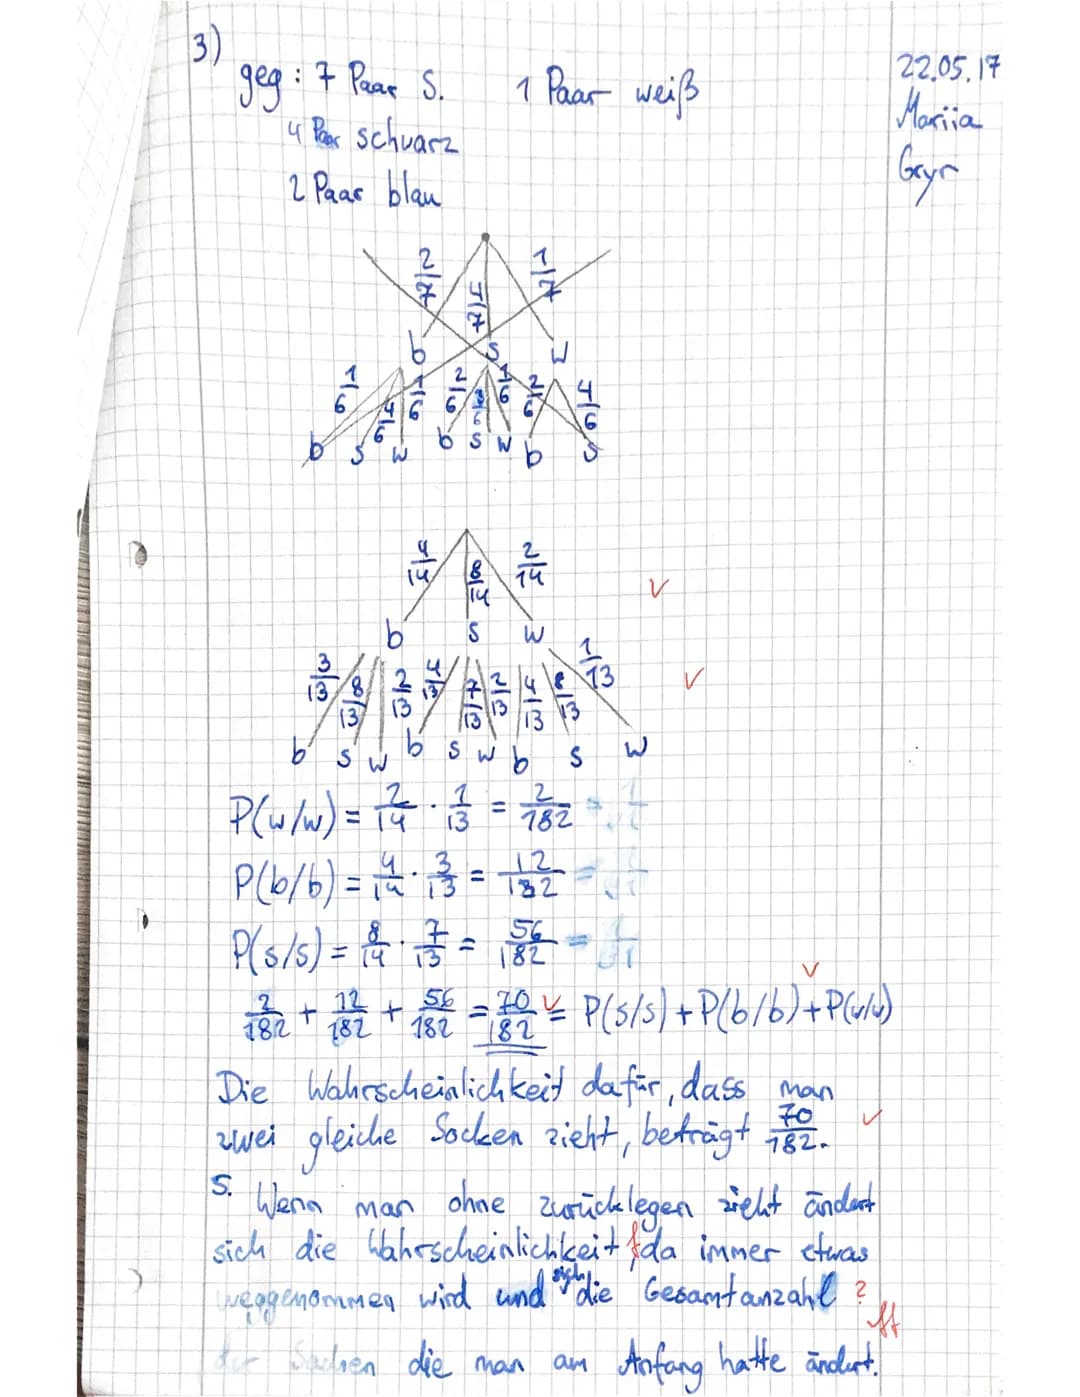 3)
geg: 7 Paar S. 1 Paar weiß
22.05.17
4 Paar schwarz
Mariia
2 Paar blau
Gryr
2/7 4/7 1/7
b s w
1/6 4/6 1/6 2/6 3/6 1/6 2/6 4/6
b s w b s w b s
4/14 8/14 2/14
b s w
3/13 8/13 2/13 4/13 7/13 2/13 4/13 8/13 1/13
b s w b s w b s w
P(w/w) = 2/14 · 1/13 = 2/182
P(b/b) = 4/14 · 3/13 = 12/182
P(s/s) = 8/14 · 7/13 = 56/182
2/182 + 12/182 + 56/182 = 70/182 = P(s/s) + P(b/b) + P(w/w)
Die Wahrscheinlichkeit dafür, dass man
zwei gleiche Socken zieht, beträgt 70/182.
5. Wenn man ohne zurücklegen zieht ändert
sich die Wahrscheinlichkeit, da immer etwas
weggenommen wird und sich die Gesamtanzahl ?
der Sachen die man am Anfang hatte ändert.